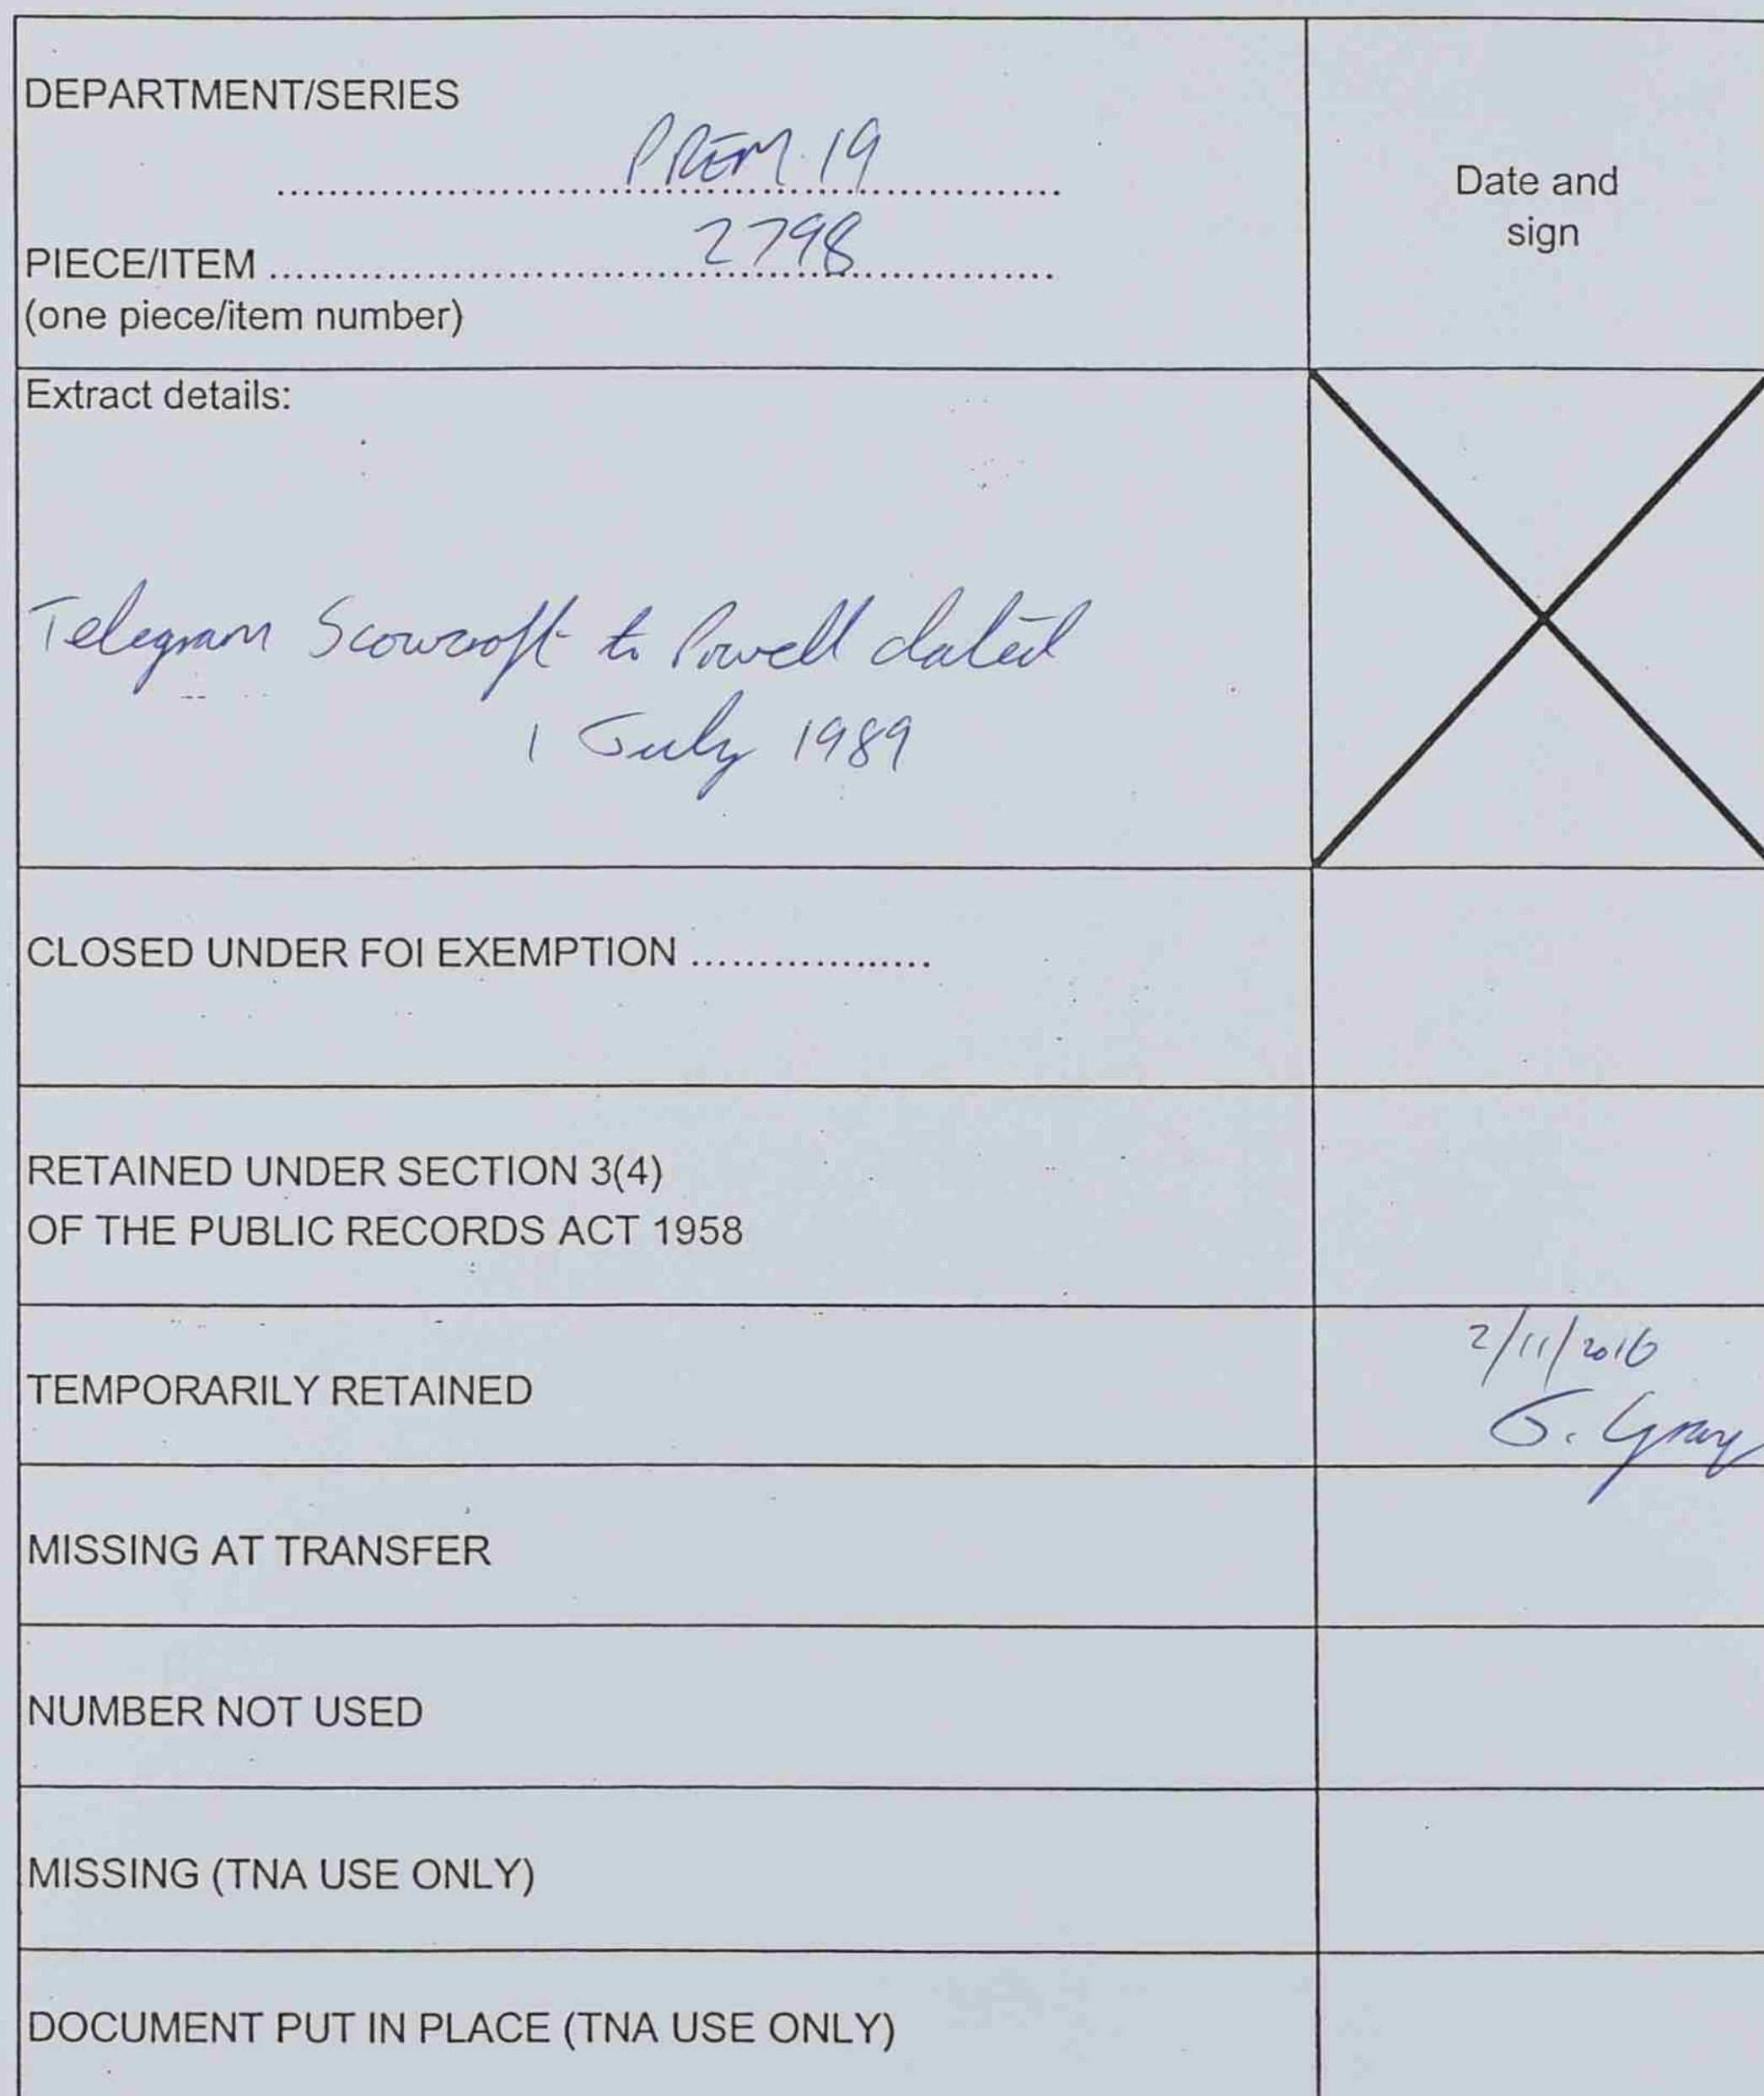 DEPARTMENT/SERIES
PREM 19
Date and
sign
PIECE/ITEM ........................................ 2798 ....................
(one piece/item number)
Extract details:
Telegram Scowcroft to Powell dated
1 July 1989
CLOSED UNDER FOI EXEMPTION ..................
RETAINED UNDER SECTION 3(4)
OF THE PUBLIC RECORDS ACT 1958
TEMPORARILY RETAINED
2/11/2016
J. Gray
MISSING AT TRANSFER
NUMBER NOT USED
MISSING (TNA USE ONLY)
DOCUMENT PUT IN PLACE (TNA USE ONLY)